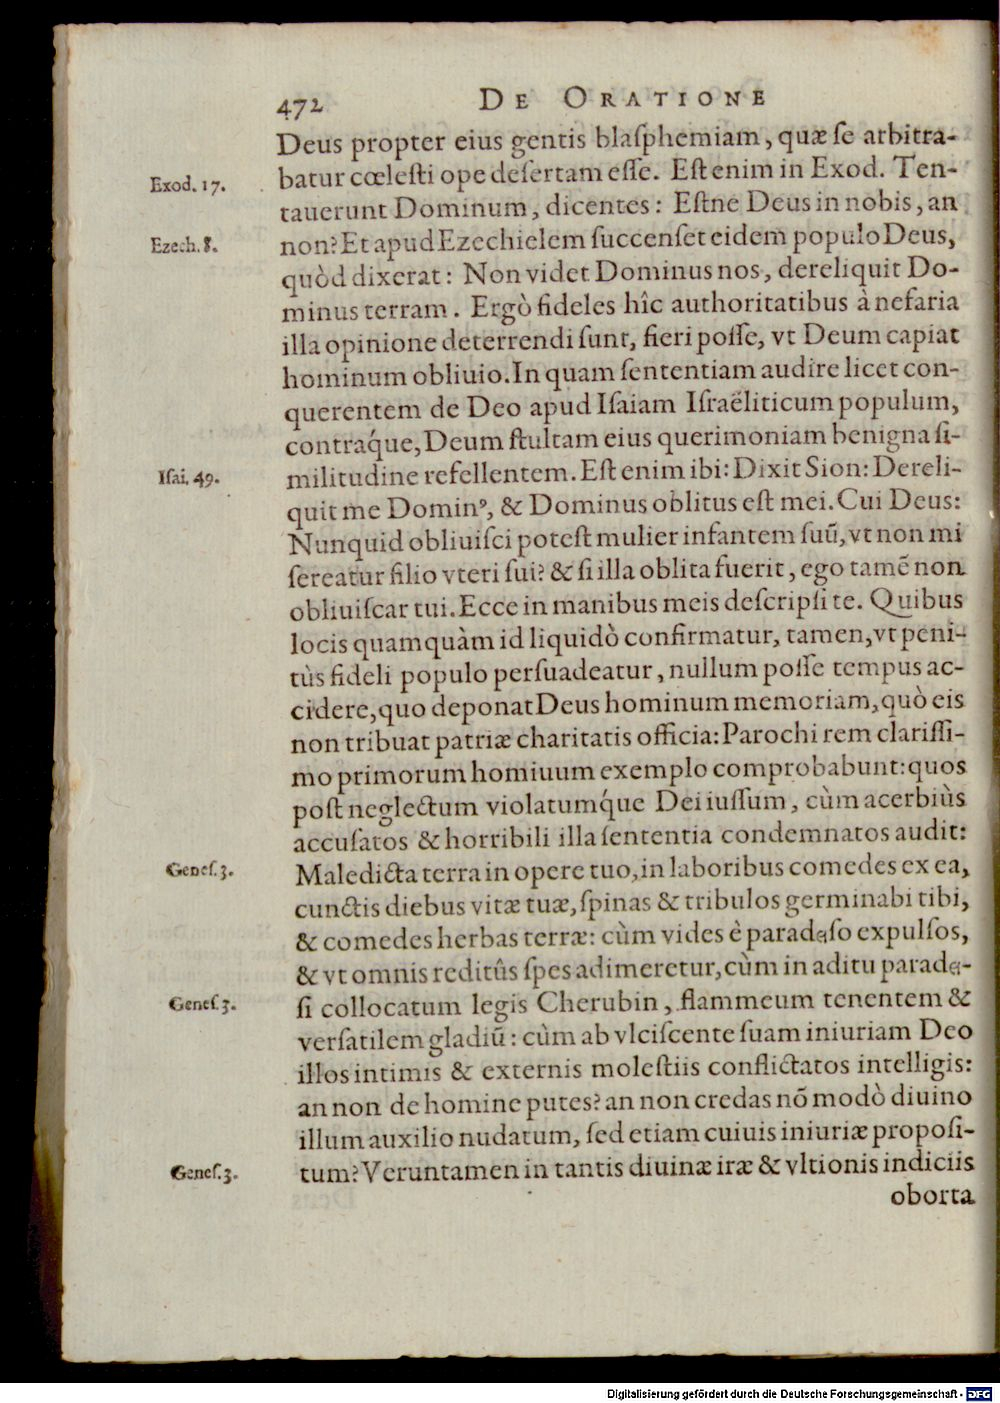 472 DE ORATIONE
Deus propter eius gentis blaſphemiam, quæ ſe arbitra-
Exod. 17. batur cœleſti ope deſertam eſſe. Eſt enim in Exod. Ten-
tauerunt Dominum, dicentes: Eſtne Deus in nobis, an
Ezech. 8. non? Et apud Ezechielem ſuccenſet eidem populo Deus,
quòd dixerat: Non videt Dominus nos, dereliquit Do-
minus terram. Ergò fideles hîc authoritatibus à nefaria
illa opinione deterrendi ſunt, fieri poſſe, vt Deum capiat
hominum obliuio. In quam ſententiam audire licet con-
querentem de Deo apud Iſaiam Iſraëliticum populum,
contraq́ue, Deum ſtultam eius querimoniam benigna ſi-
Iſai. 49. militudine refellentem. Eſt enim ibi: Dixit Sion: Dereli-
quit me Dominꝰ, & Dominus oblitus eſt mei. Cui Deus:
Nunquid obliuiſci poteſt mulier infantem ſuũ, vt non mi
ſereatur filio vteri ſui? & ſi illa oblita fuerit, ego tamẽ non
obliuiſcar tui. Ecce in manibus meis deſcripſi te. Quibus
locis quamquàm id liquidò confirmatur, tamen, vt peni-
tùs fideli populo perſuadeatur, nullum poſſe tempus ac-
cidere, quo deponat Deus hominum memoriam, quò eis
non tribuat patriæ charitatis officia: Parochi rem clariſſi-
mo primorum homiuum exemplo comprobabunt: quos
poſt neglectum violatumq́ue Dei iuſſum, cùm acerbiùs
accuſatos & horribili illa ſententia condemnatos audit:
Geneſ. 3. Maledicta terra in opere tuo, in laboribus comedes ex ea,
cunctis diebus vitæ tuæ, ſpinas & tribulos germinabi tibi,
& comedes herbas terræ: cùm vides è paradęſo expulſos,
& vt omnis reditûs ſpes adimeretur, cùm in aditu paradę-
Geneſ. 3. ſi collocatum legis Cherubin, flammeum tenentem &
verſatilem gladiũ: cùm ab vlciſcente ſuam iniuriam Deo
illos intimis & externis moleſtiis conflictatos intelligis:
an non de homine putes? an non credas nõ modò diuino
illum auxilio nudatum, ſed etiam cuiuis iniuriæ propoſi-
Geneſ. 3. tum? Veruntamen in tantis diuinæ iræ & vltionis indiciis
oborta
Digitalisierung gefördert durch die Deutsche Forschungsgemeinschaft - DFG